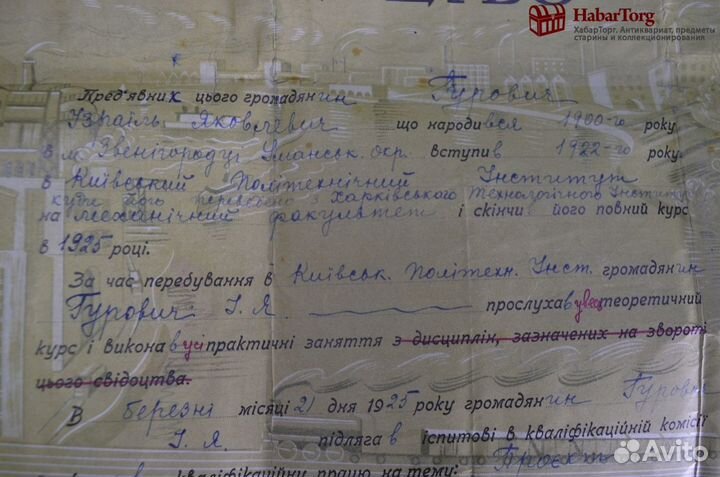 HabarTorg
ХабарТорг. Антиквариат, предметы
старины и коллекционирования
Пред'явник цього громадянин Гурович
Ізраїль Яковлевич що народився 1900-го року
в м. Звенігородці Уманськ. окр. вступив 1922-го року.
в Київський Політехнічний Інститут
куди його переведено з Харківського Технологічного Інституту
на механічний факультет і скінчив його повний курс
в 1925 році.
За час перебування в Київськ. Політехн. Інст. громадянин
Гурович І. Я. прослухав увесь теоретичний
курс і виконав усі практичні заняття з дисциплін, зазначених на звороті
цього свідоцтва.
В березні місяці 21 дня 1925 року громадянин Гурович
І. Я. підлягав іспитові в кваліфікаційній комісії
кваліфікаційну працю на тему: Проєкт
Avito